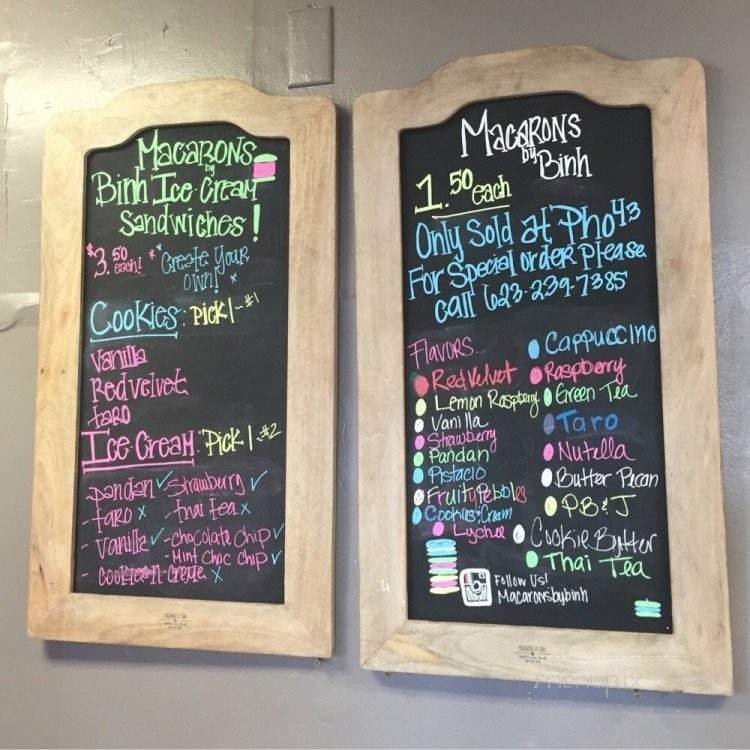 MACARONS
by
Binh Ice Cream
Sandwiches!
$3.50 each!
*Create Your
Own! *
Cookies: Pick 1 - #1
Vanilla
Red velvet
taro
Ice Cream: Pick 1 - #2
- pandan ✓ - Strawburry ✓
- taro x - Thai Tea x
- Vanilla ✓ - chocolate chip ✓
- Mint Choc chip ✓
- x
MACARONS
by Binh
1.50 each
Only Sold at Pho43
For Special order Please
call 623-239-7385
Flavors...
Red Velvet
Lemon Raspberry
Vanilla
Strawberry
Pandan
Pistacio
Fruity Pebbles
Cookies & Cream
Lychee
Cappuccino
Raspberry
Green Tea
Taro
Nutella
Butter Pecan
PB & J
Cookie Butter
Thai Tea
Follow Us!
Macaronsbybinh
menupix